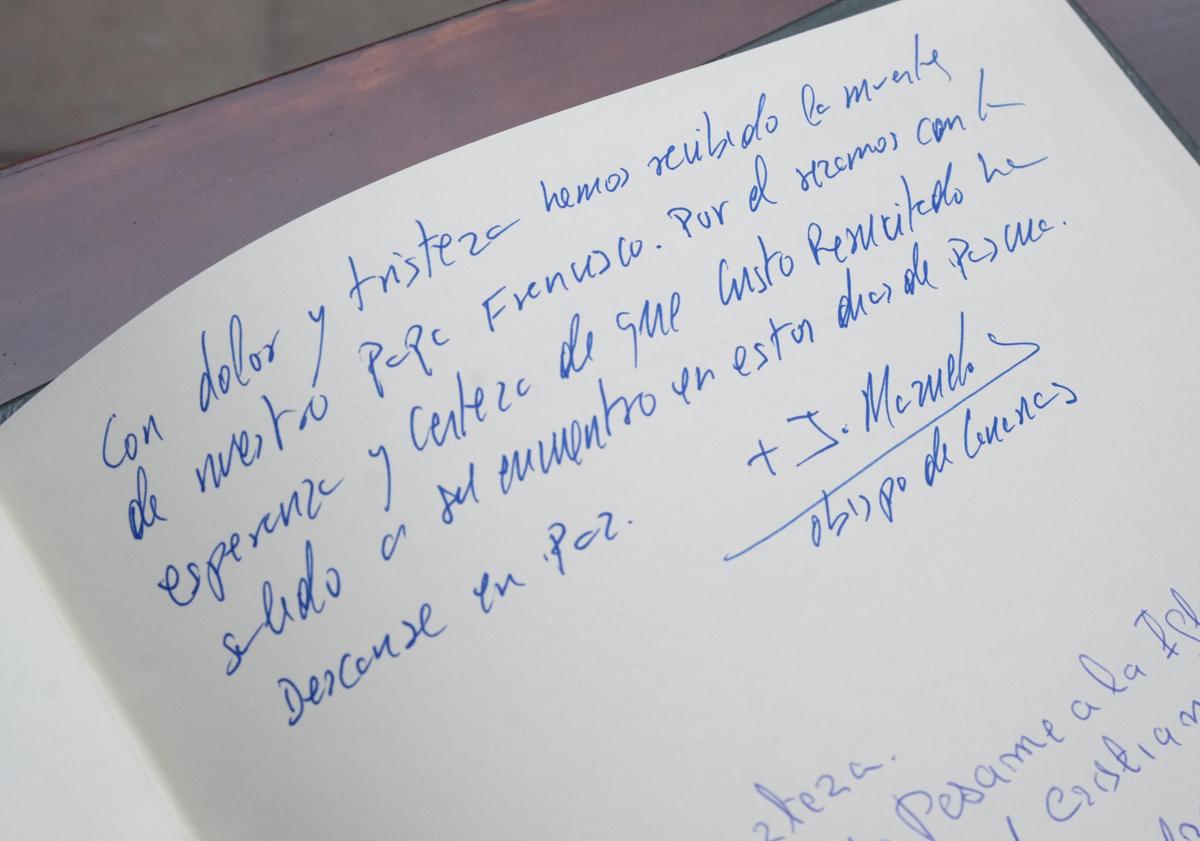 Con dolor y tristeza hemos recibido la muerte
de nuestro papa Francisco. Por el rezamos con la
esperanza y certeza de que Cristo Resucitado ha
salido a su encuentro en estos dias de Pascua.
Descanse en Paz.
+ J. Mazuelos
obispo de Canarias
Pesame a la